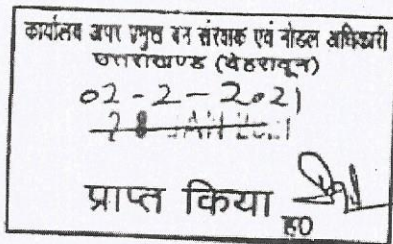 कार्यालय अपर प्रमुख वन संरक्षक एवं नोडल अधिकारी
उत्तराखण्ड (देहरादून)
02-2-2021
28 JAN 2021
प्राप्त किया
ह0